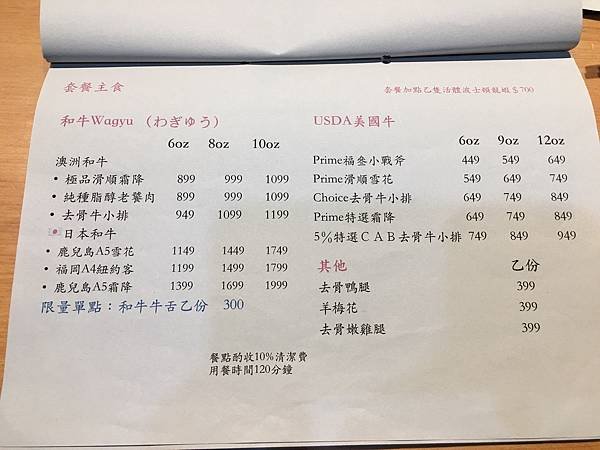 套餐主食
套餐加點乙隻活體波士頓龍蝦$700
和牛Wagyu (わぎゅう)
6oz 8oz 10oz
澳洲和牛
• 極品滑順霜降 899 999 1099
• 純種脂醇老饕肉 899 999 1099
• 去骨牛小排 949 1099 1199
日本和牛
• 鹿兒島A5雪花 1149 1449 1749
• 福岡A4紐約客 1199 1499 1799
• 鹿兒島A5霜降 1399 1699 1999
限量單點：和牛牛舌乙份 300
USDA美國牛
6oz 9oz 12oz
Prime福叁小戰斧 449 549 649
Prime滑順雪花 549 649 749
Choice去骨牛小排 649 749 849
Prime特選霜降 649 749 849
5%特選CAB去骨牛小排 749 849 949
其他 乙份
去骨鴨腿 399
羊梅花 399
去骨嫩雞腿 399
餐點酌收10%清潔費
用餐時間120分鐘